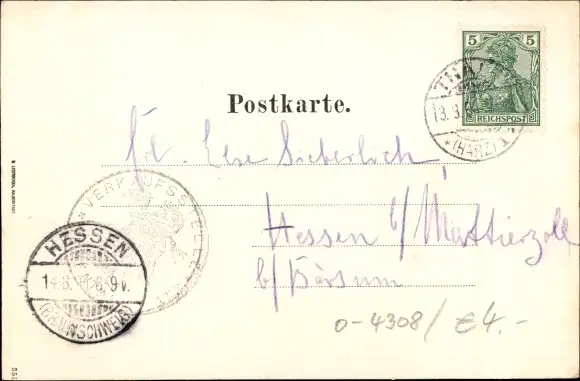 5 5
REICHSPOST
THALE
13.8.
*(HARZ)
Postkarte.
Frl. Else Sieberlich,
Hessen b/ Mattierzoll
b/ Börsum
*VERKAUFSSTELLE
HESSEN
14.8. 8-9V.
(BRAUNSCHWEIG)
0-4308/ €4.-